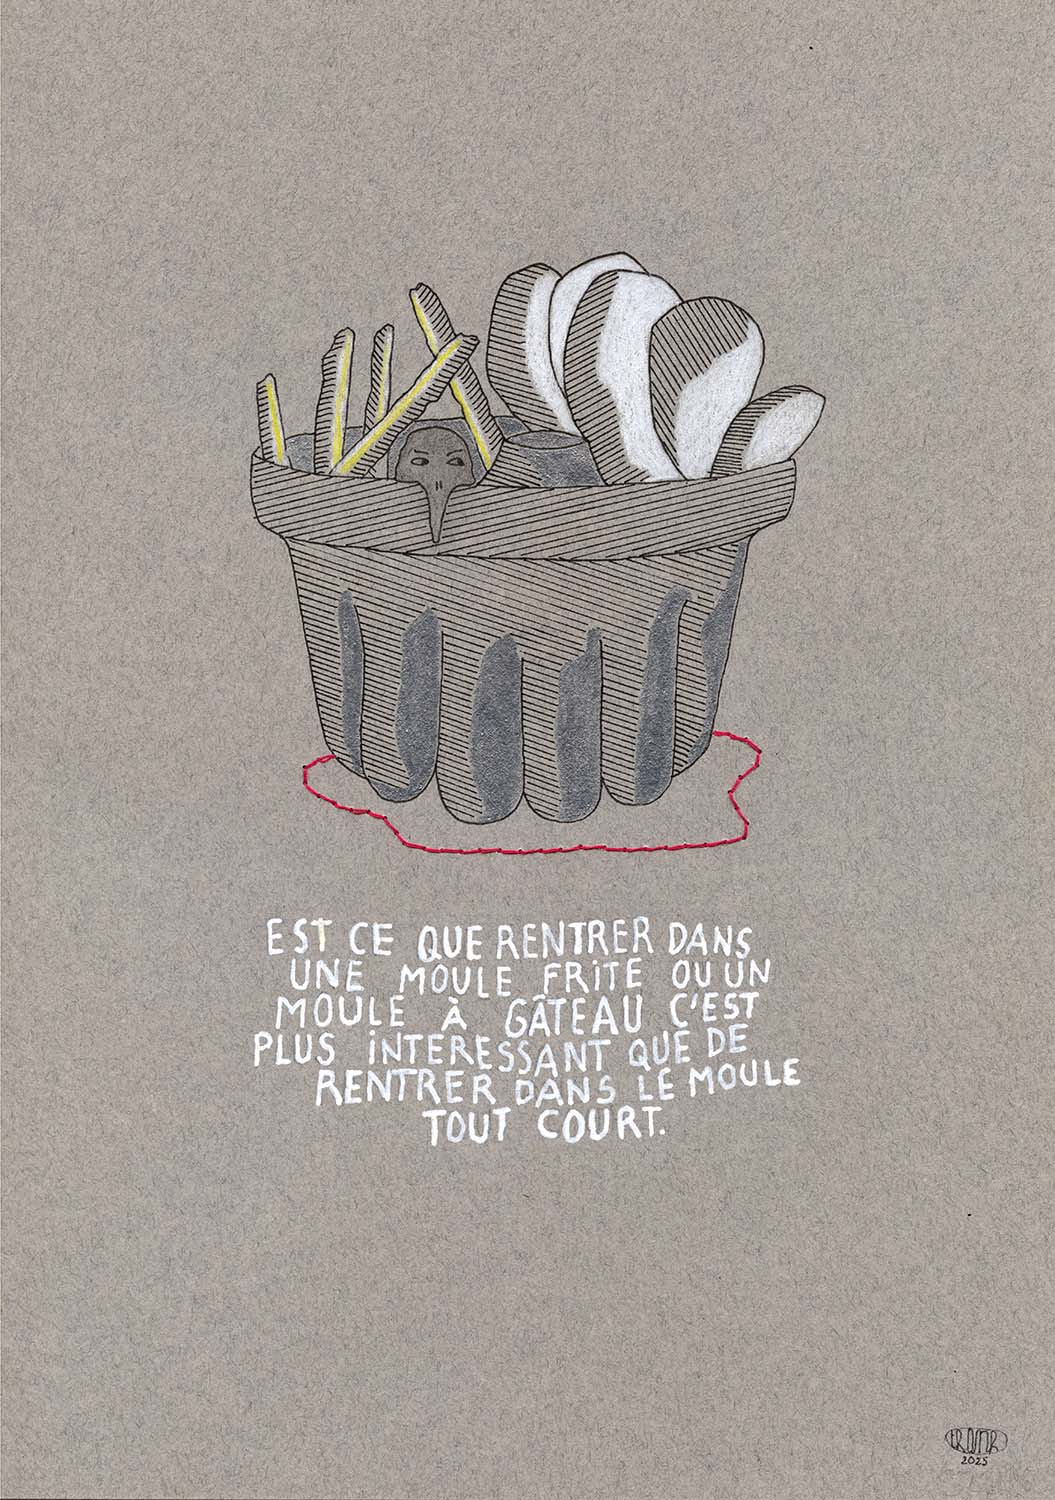 EST CE QUE RENTRER DANS
UNE MOULE FRITE OU UN
MOULE À GÂTEAU C'EST
PLUS INTERESSANT QUE DE
RENTRER DANS LE MOULE
TOUT COURT.
2025